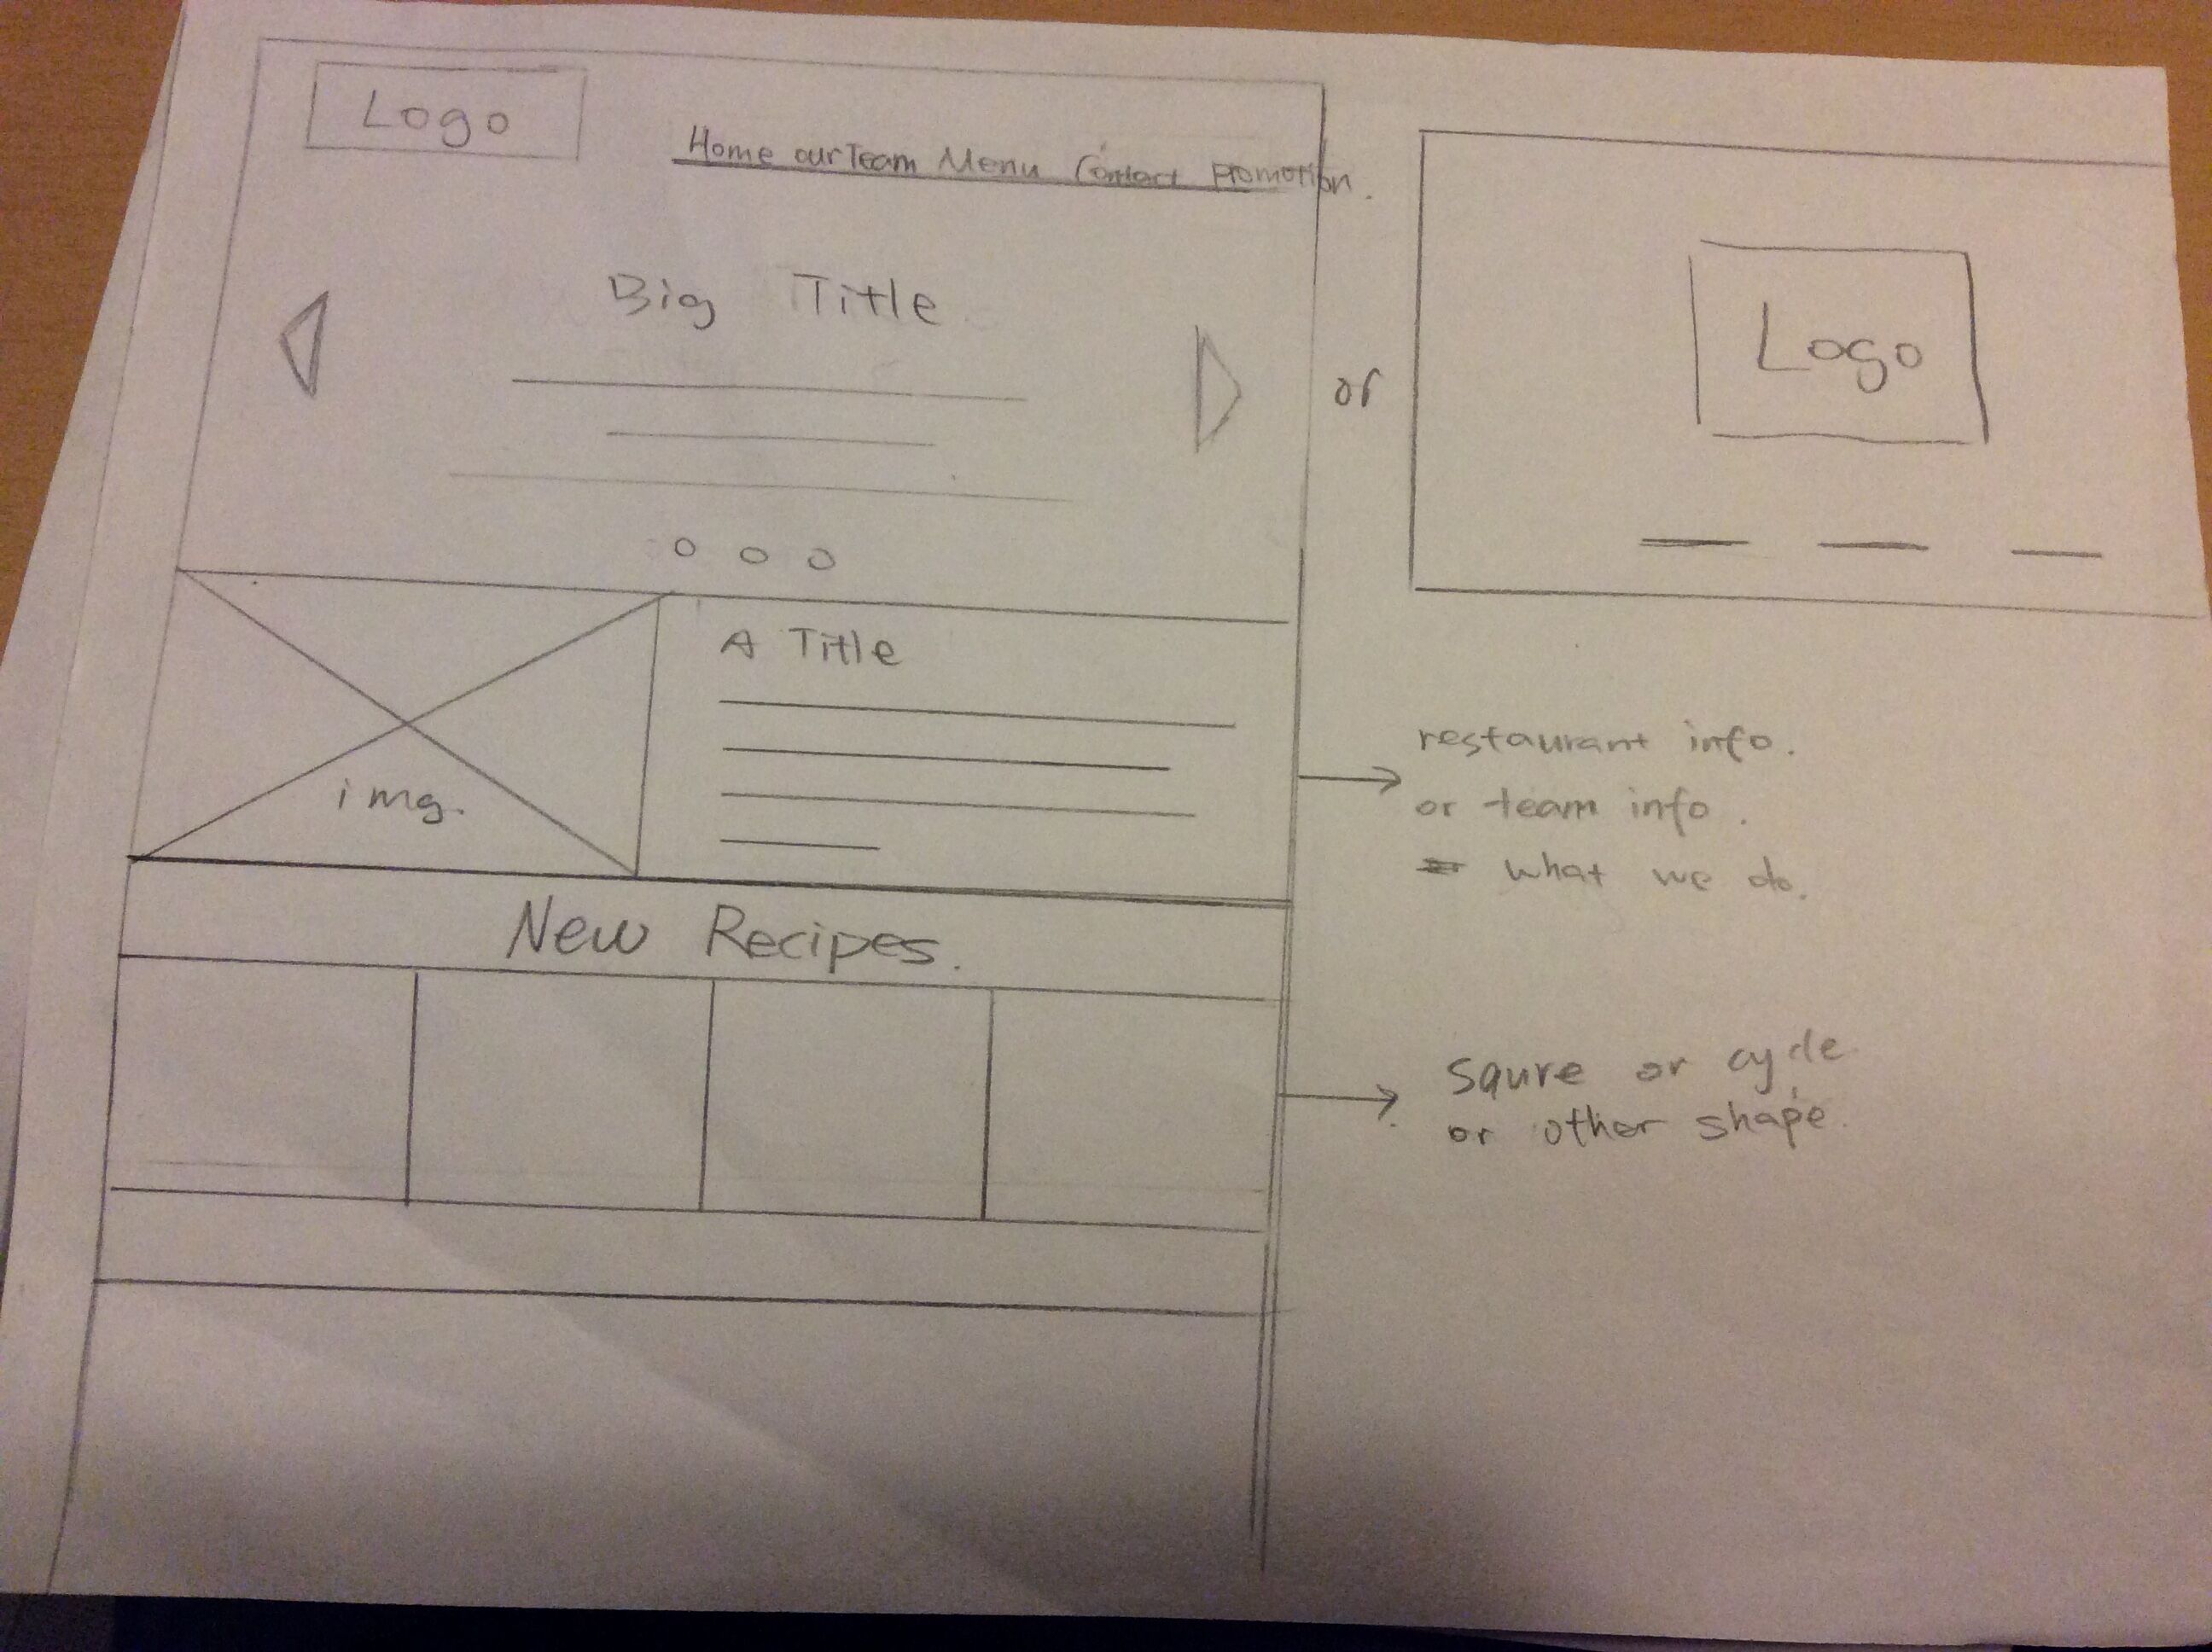 Logo
Home our Team Menu Contact Promotion.
Big Title
or
Logo
A Title
img.
restaurant info.
or team info.
what we do.
New Recipes.
Squre or cycle
or other shape.